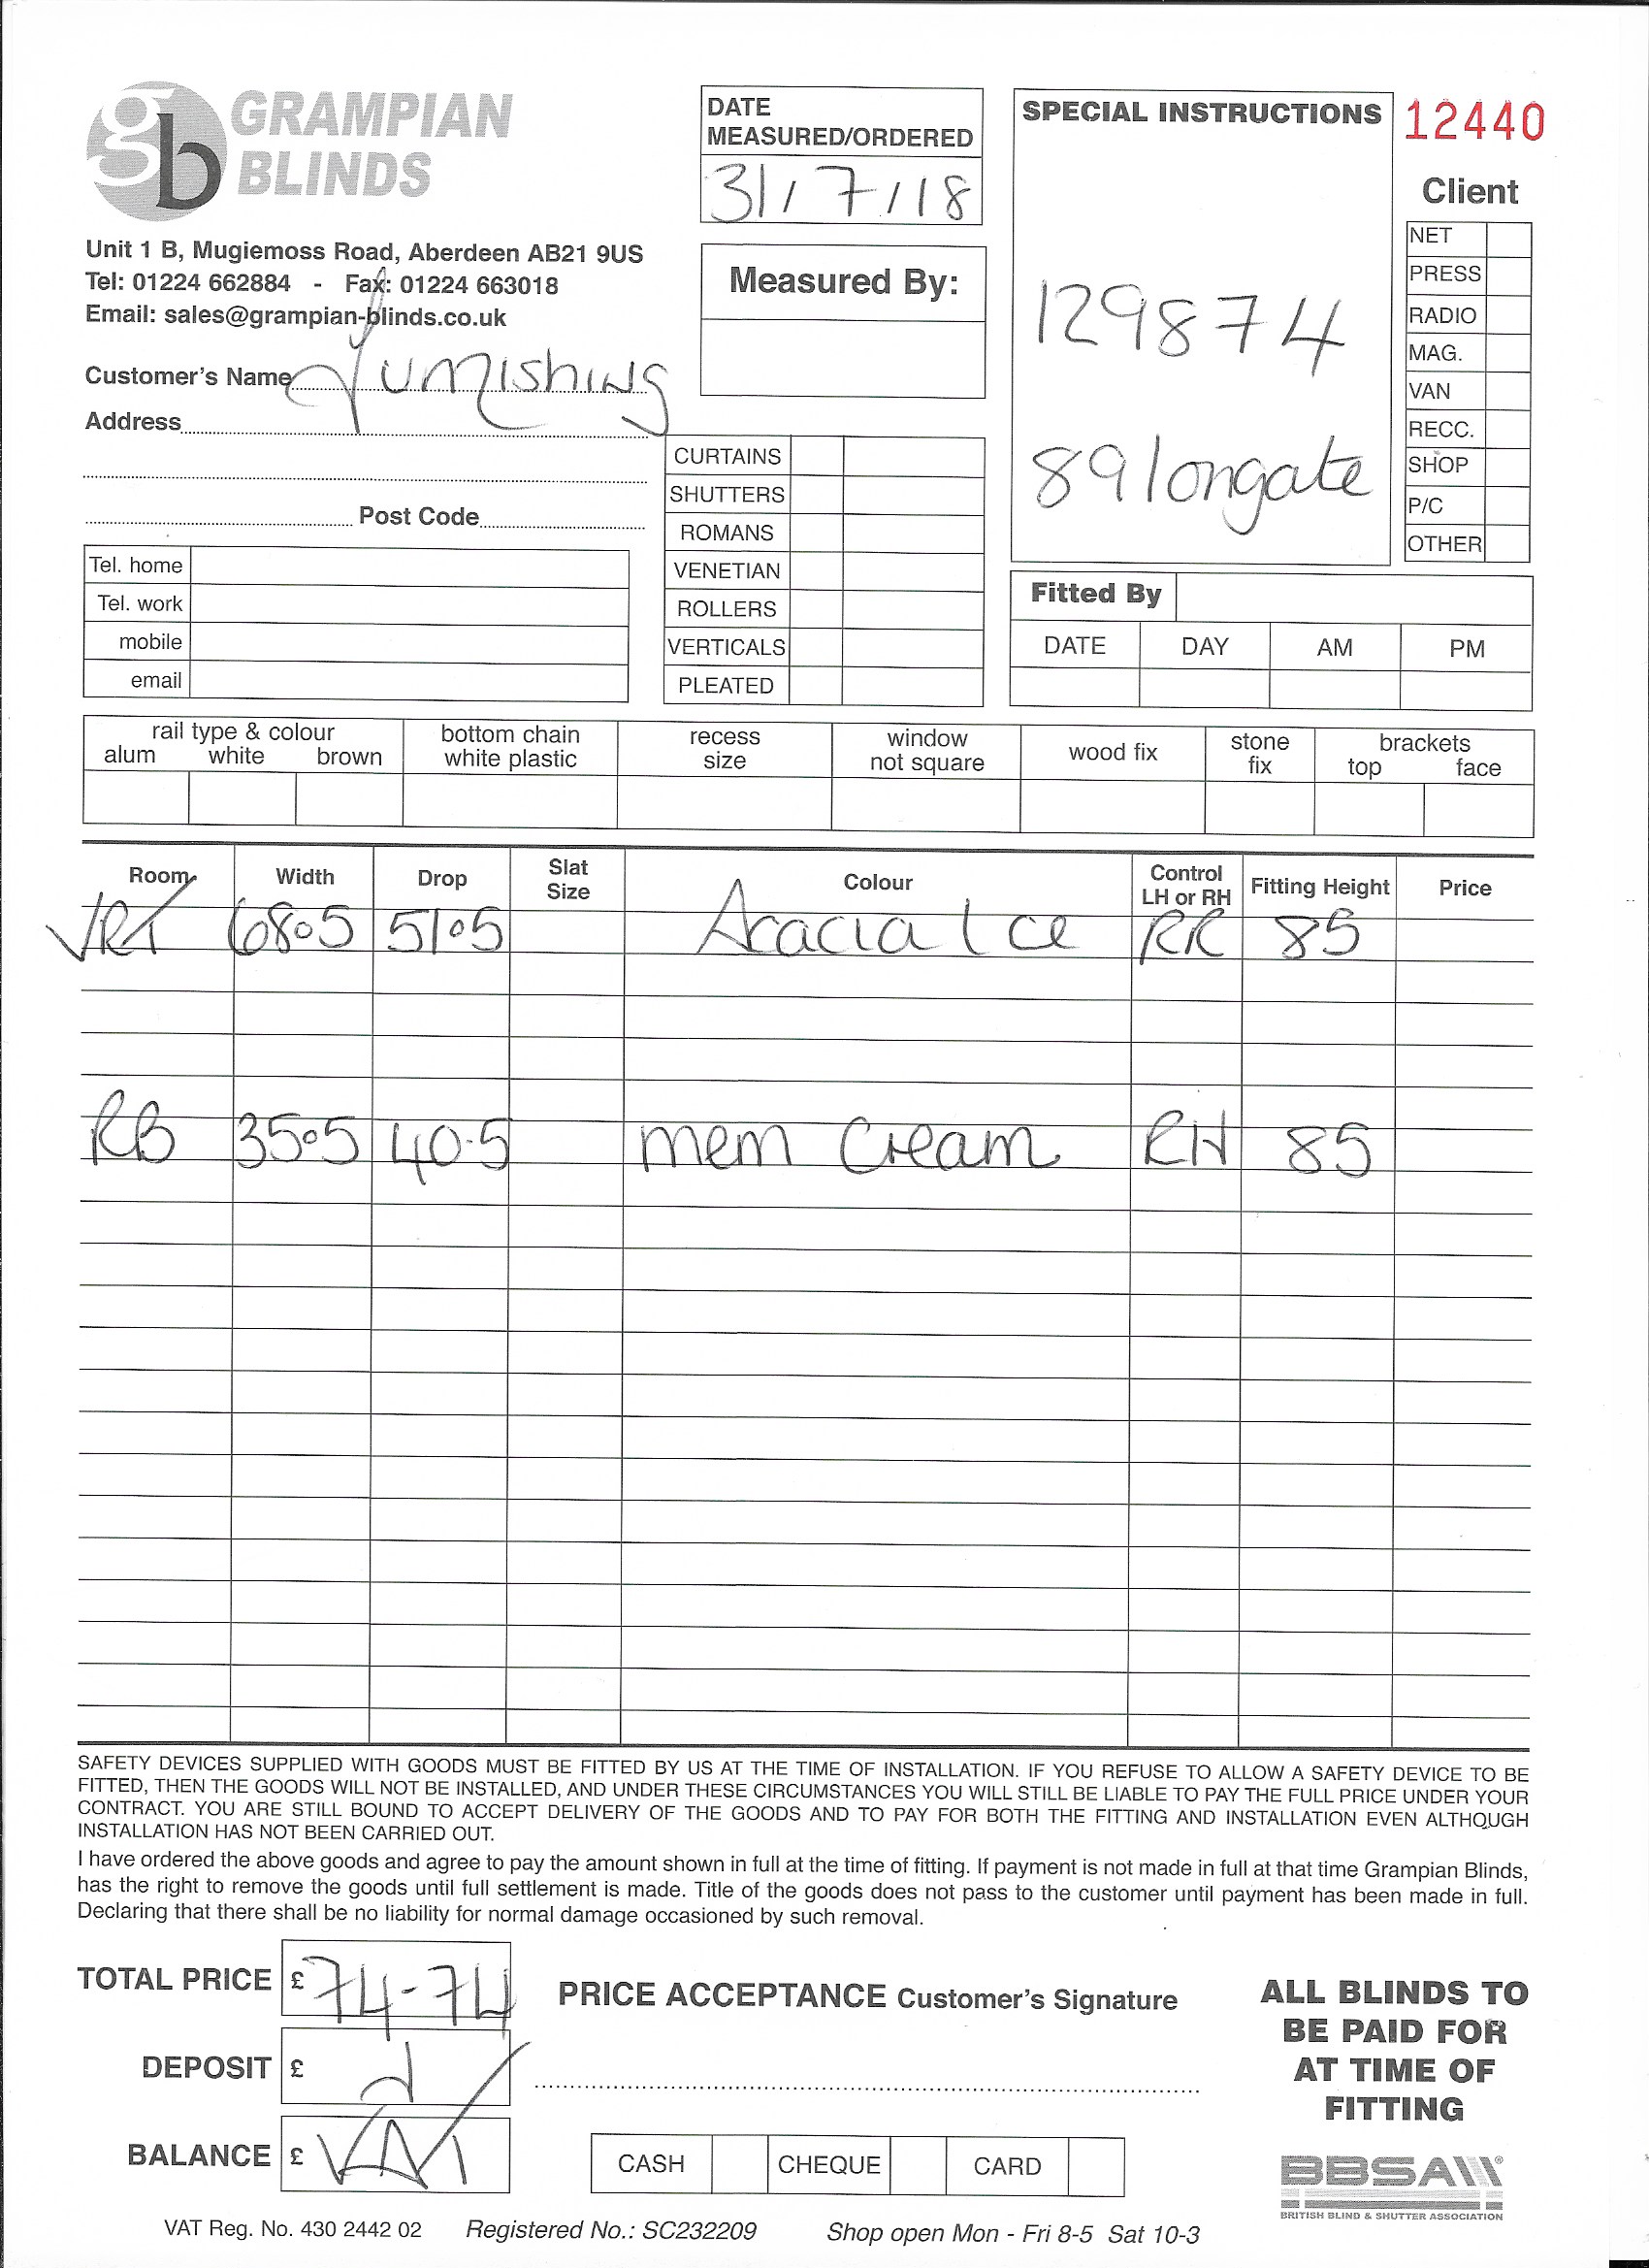 gb GRAMPIAN
BLINDS
Unit 1 B, Mugiemoss Road, Aberdeen AB21 9US
Tel: 01224 662884 - Fax: 01224 663018
Email: sales@grampian-blinds.co.uk
Customer's Name furnishing
Address
Post Code
Tel. home
Tel. work
mobile
email
DATE
MEASURED/ORDERED
31/7/18
Measured By:
CURTAINS
SHUTTERS
ROMANS
VENETIAN
ROLLERS
VERTICALS
PLEATED
SPECIAL INSTRUCTIONS
129874
89 longate
12440
Client
NET
PRESS
RADIO
MAG.
VAN
RECC.
SHOP
P/C
OTHER
Fitted By
DATE DAY AM PM
rail type & colour
alum white brown
bottom chain
white plastic
recess
size
window
not square
wood fix
stone
fix
brackets
top face
Room Width Drop Slat Size Colour Control LH or RH Fitting Height Price
VRT 68.5 51.5 Acacia Ice RR 85
RB 35.5 40.5 mem Cream RH 85
SAFETY DEVICES SUPPLIED WITH GOODS MUST BE FITTED BY US AT THE TIME OF INSTALLATION. IF YOU REFUSE TO ALLOW A SAFETY DEVICE TO BE
FITTED, THEN THE GOODS WILL NOT BE INSTALLED, AND UNDER THESE CIRCUMSTANCES YOU WILL STILL BE LIABLE TO PAY THE FULL PRICE UNDER YOUR
CONTRACT. YOU ARE STILL BOUND TO ACCEPT DELIVERY OF THE GOODS AND TO PAY FOR BOTH THE FITTING AND INSTALLATION EVEN ALTHOUGH
INSTALLATION HAS NOT BEEN CARRIED OUT.
I have ordered the above goods and agree to pay the amount shown in full at the time of fitting. If payment is not made in full at that time Grampian Blinds,
has the right to remove the goods until full settlement is made. Title of the goods does not pass to the customer until payment has been made in full.
Declaring that there shall be no liability for normal damage occasioned by such removal.
TOTAL PRICE £ 74-74
DEPOSIT £
BALANCE £ VAT
PRICE ACCEPTANCE Customer's Signature
CASH CHEQUE CARD
ALL BLINDS TO
BE PAID FOR
AT TIME OF
FITTING
BBSA
BRITISH BLIND & SHUTTER ASSOCIATION
VAT Reg. No. 430 2442 02 Registered No.: SC232209 Shop open Mon - Fri 8-5 Sat 10-3